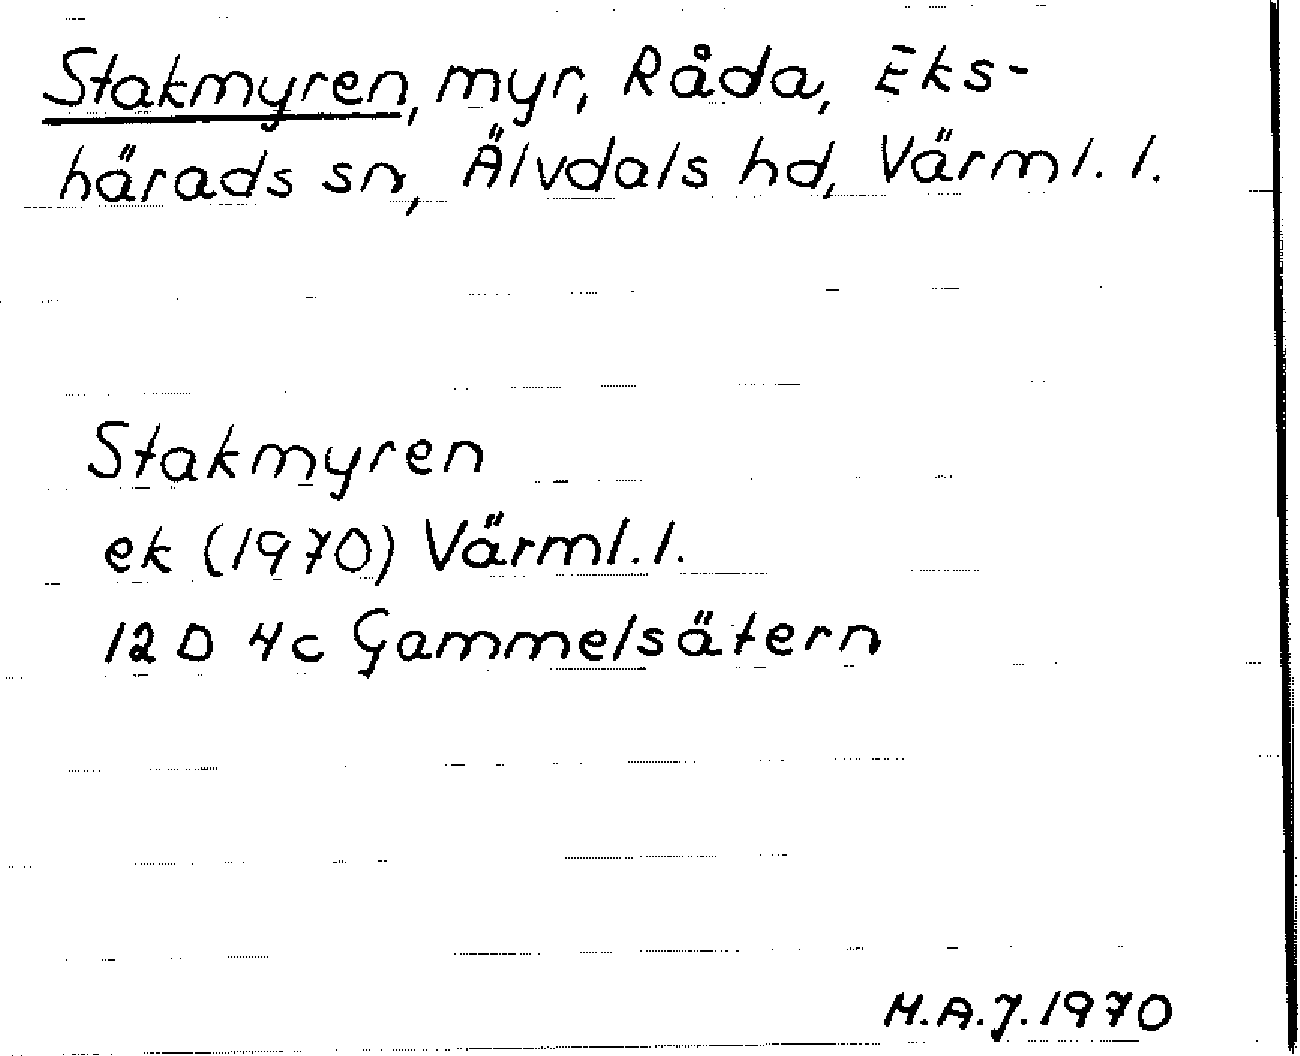 Stakmyren, myr, Råda, Eks-
härads sn, Älvdals hd, Värml. l.
Stakmyren
ek (1970) Värml. l.
12 D 4c Gammelsätern
H.A.J. 1970